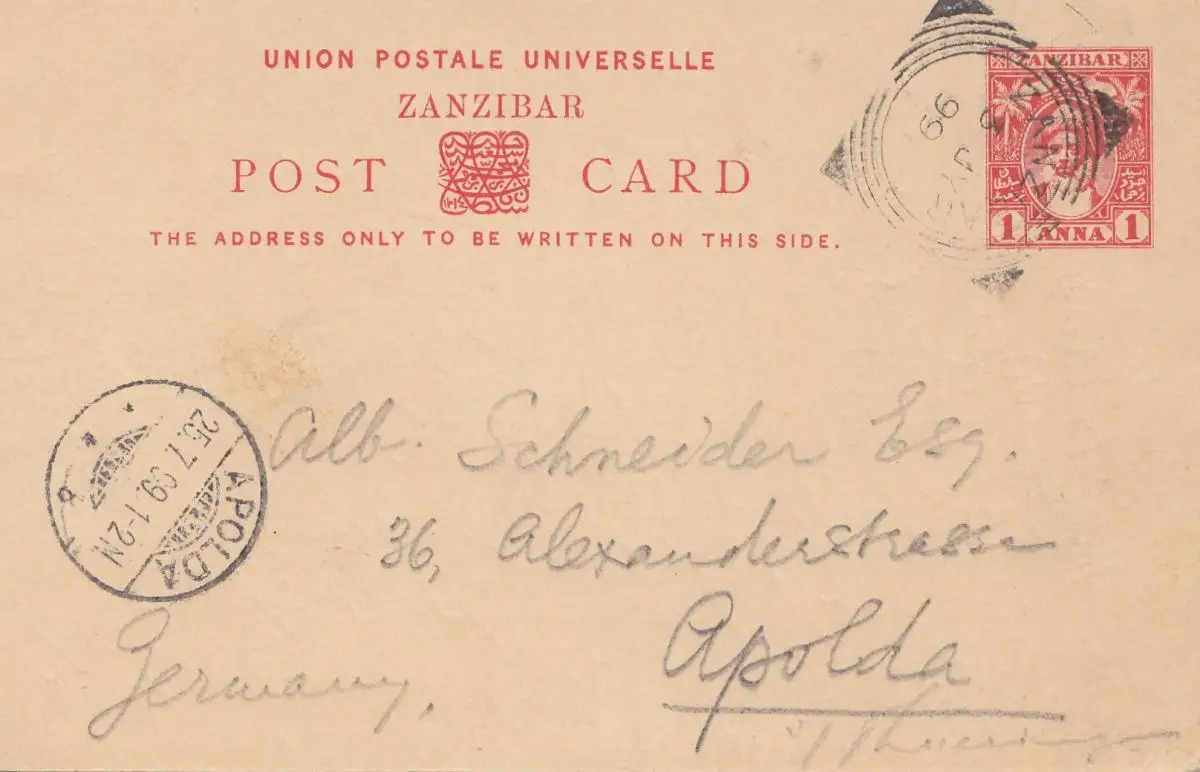 UNION POSTALE UNIVERSELLE
ZANZIBAR
POST CARD
THE ADDRESS ONLY TO BE WRITTEN ON THIS SIDE.
ZANZIBAR
1 ANNA 1
ZANZIBAR
99
APOLDA
25.7.99.1-2N
Alb. Schneider Esq.
36, Alexanderstrasse
Apolda
Germany,